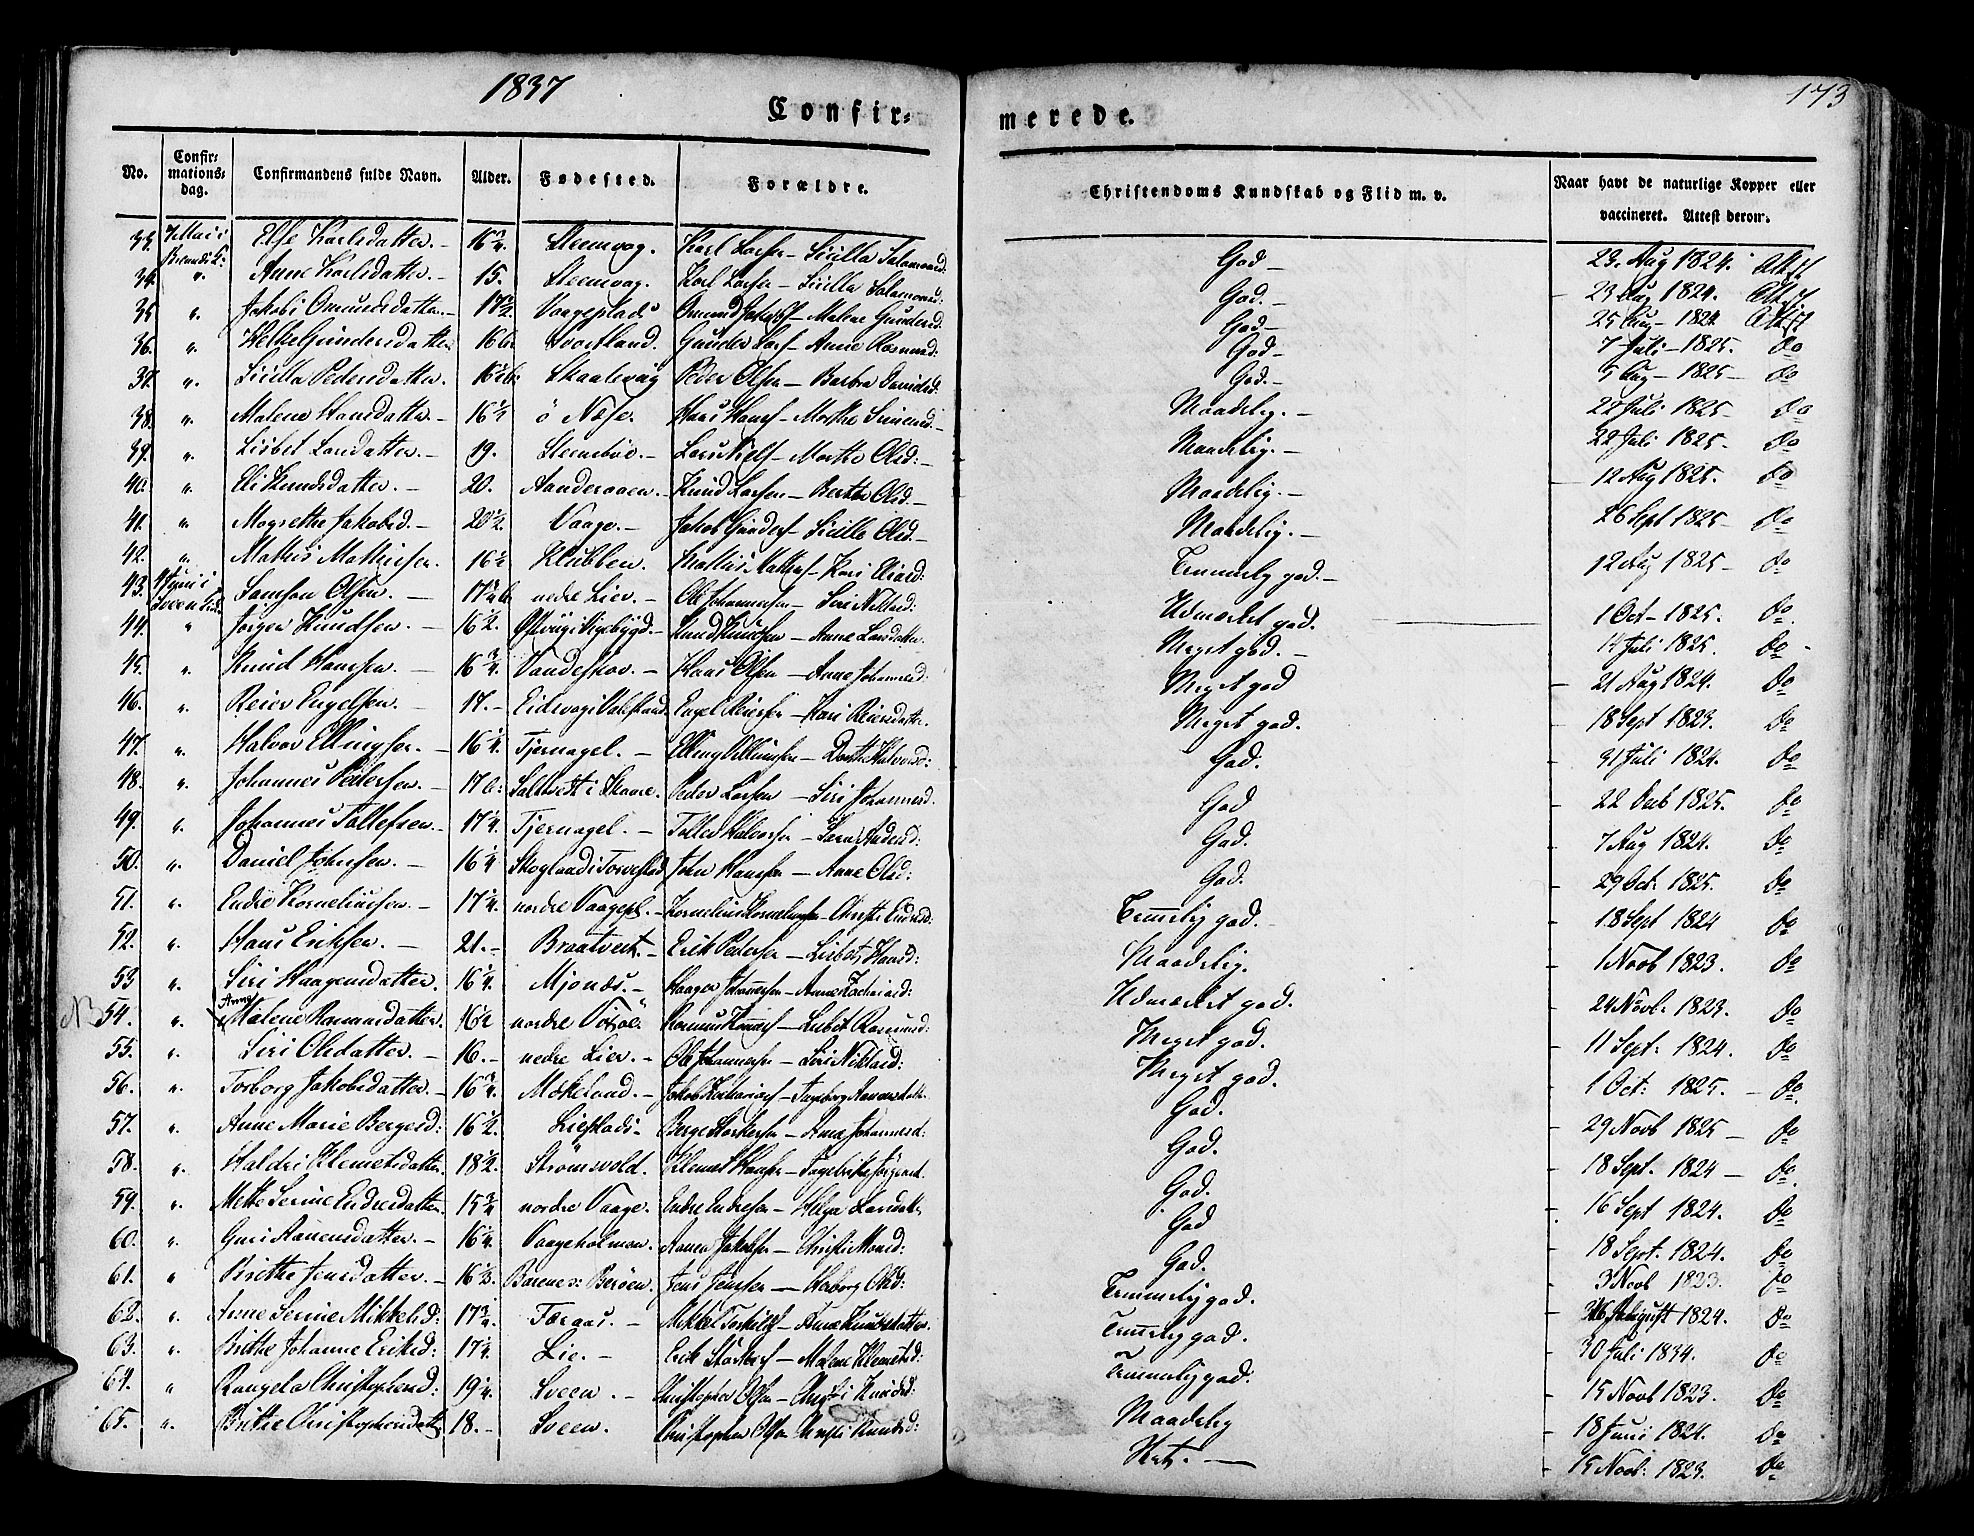 1837
173
Confir=
merede.
No. Confir=mations=dag. Confirmandens fulde Navn. Alder. Fødested. Forældre. Christendoms Kundskab og Flid m. v. Naar havt de naturlige Kopper eller vaccineret. Attest derom.
33. 7 Mai i Else Karlsdatter. 16 3/4. Steensvag. Karl Larsen – Sicilla Salamonsd: God – 23. Aug 1824. Attest
34. " Anne Karlsdatter. 15. Steensvag. Karl Larsen – Sicilla Salamonsd: God. – 23 Aug 1824. Attest
35 " Jakobi Omundsdatter. 17 1/2. Vaageplads Omund Jakobs – Malene Gundersd. God – 25 Aug – 1824 Attest
36. " Helke Gundersdatter 16 Svortland. Gunder Lars – Anne Rasmusd: God – 7 Juli – 1825. Do
37. " Sicilla Pedersdatter. 16 Skaalevåg Peder Olsen – Barbra Davidsd: God. – 5 Aug – 1825 – Do
38. " Malene Hansdatter. 16 1/2 ö Næse. Hans Hans – Marthe Simensd. Maadelig. – 22 Juli 1825 Do
39. " Lisbet Larsdatter. 19. Steensböe. – Lars Niels – Marthe Olsd: – Maadelig. – 22 Juli 1825. Do
40. " Eli Knudsdatter. – 20. Aanderaaen. Knud Larsen – Berthe Olsd. – Maadelig. – 12 Aug 1825. Do
41. " Magrethe Jakobsd. – 20 1/2. Vaage. – Jakob Gunders – Sicille Olsd. – Maadelig. – 26 Sept 1825 – Do
42. " Mathis Mathiesen. 16 1/2 Klubben. Mathis Mathis – Kari Olsd: Temmelig god. – 12 Aug 1825 – Do
43. 4 Juni i Sveen Samson Olsen. – 17 nedre Lier. – Ole Johannesen – Siri Nilsd: Udmærket god. 1 Oct – 1825. Do
44. " Jörgen Knudsen. – 16 1/2. Knud Knudsen – Anne Larsdatter. Meget god. – 14 Juli 1825. Do
45. " Knud Hansen. – 16 3/4. Vandeskov. – Hans Olsen – Anne Johannesd: Meget god 21 Aug 1824. Do
46. " Reier Engelsen. – 17. – Eidsvag i Engel Reiersen – Kari Reiersdatter. Meget god. 18 Sept 1823. Do
47. " Halvor Ellingsen. – 16 1/4. Tjernagel. – Elling Ellingsen – Dorthe Halvorsd: God. 31 Juli 1824. Do
48. " Johannes Pedersen. – 17 Peder Larsen – Siri Johannesd. God 22 1825. Do
49. " Johannes Tollefsen. 17 1/4. Tjernagel. – Tollef Halvorsen – God. 7 Aug 1824. Do
50. " Daniel Johnsen. – 16 1/4 Skogland i Torvestad John Hansen – Anne Olsd: God. 29 Oct. 1825. Do
51. " Endre Korneliusen. – 17 1/4. nordre Vaagepl. – Kornelius Korneliusen – Christi Endresd: Temmelig god. – 18 Sept 1824 Do
52. " Hans Eriksen. – 21. – Braatveit. – Erik Pedersen – Lisbet Hansd: Maadelig. 1 Novb 1823. Do
53 " Siri Haagensdatter. 16 1/4. Mjonæs. – Haagen Johannesen – Anne Zachariasd: Udmærket god. 24 Novb. 1823. Do
NB 54. " Anne Malene Rasmusdatter. 16 1/2 nordre Rasmus – Lisbet Rasmusd: Meget god. 11 Sept: 1824. Do
55. " Siri Olsdatter. – 16. – nedre Lier. – Ole Johannesen – Siri Nilsd: Meget god. 1 Oct: 1825. – Do.
56. " Torborg Jakobsdatter. – 16 3/4. Mækeland. – Jakob Zacharias – Ingeborg God. 29 Novb 1825 – Do
57. " Anne Marie Bergesd: 16 1/2. Liestads. – Berge Storksen – Anna Johannesd: God. 18 Sept. 1824 – Do
58. " Haldri Klemetsdatter. 18 1/2. Strömsvold. Klemet Hansen – God. 16 Sept 1824. Do
59. " Mette Serine Endresdatter. 15 3/4 nordre Vaage. Endre Endresen – Helga Larsdatt. God 18 Sept. 1824. Do
60. " Guri Aanensdatter. – 16 1/4. Vaageholmen. Aanen Jakobsen – Christi Monsd: God. 3 Novb 1823. Do
61. " Brithe Jensdatter. – 16 1/3. Barenes: Beröen. Jens Jensen – Herborg Olsd: Temmelig god. 26 August 1824. Do
62. " Anne Serine Mikkelsd: 17 3/4. Færaas. – Mikkel Torkils – Anne Knudsdatter. Temmelig god. 30 Juli 1834. Do
63. " Brithe Johanne Eriksd: 17 1/4. Lie. – Erik Storkers – Malene Klemetsd: Temmelig god. 15 Novb 1823. Do
64. " Rangela Christophersd: 19 1/4. Sveen. – Christopher Olsen – Christi Knudsd: Maadelig 18 Juni 1824. Do
65. " Brithe Christophersdatt. 18. – Sveen. Christopher Olsen – Christi Knudsd: Slet. – 15 Novb: 1823. Do